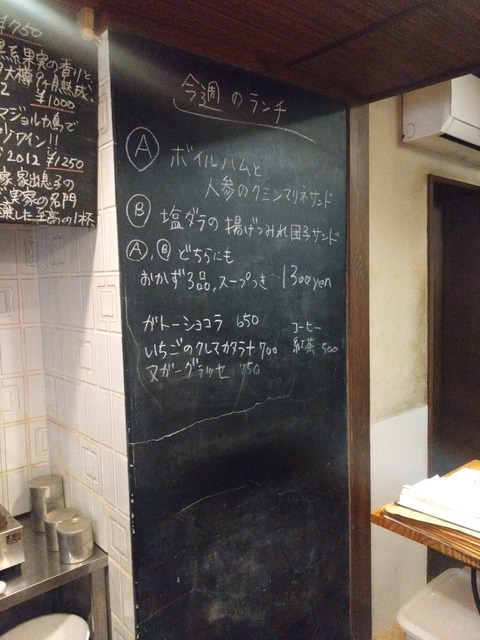 ¥750
果実の香りと
大樽の ヶ月熟成、
¥1000
マジョルカ島で
ワイン!!
2012 ¥1250
家出息子の
実家の名門
した至高の1杯
今週のランチ
A ボイルハムと
人参のクミンマリネサンド
B 塩ダラの揚げつみれ団子サンド
A, B どちらにも
おかず3品,スープつき 1300yen
ガトーショコラ 650
コーヒー
いちごのクレマカタラナ 700
紅茶 500
ヌガーグラッセ 750